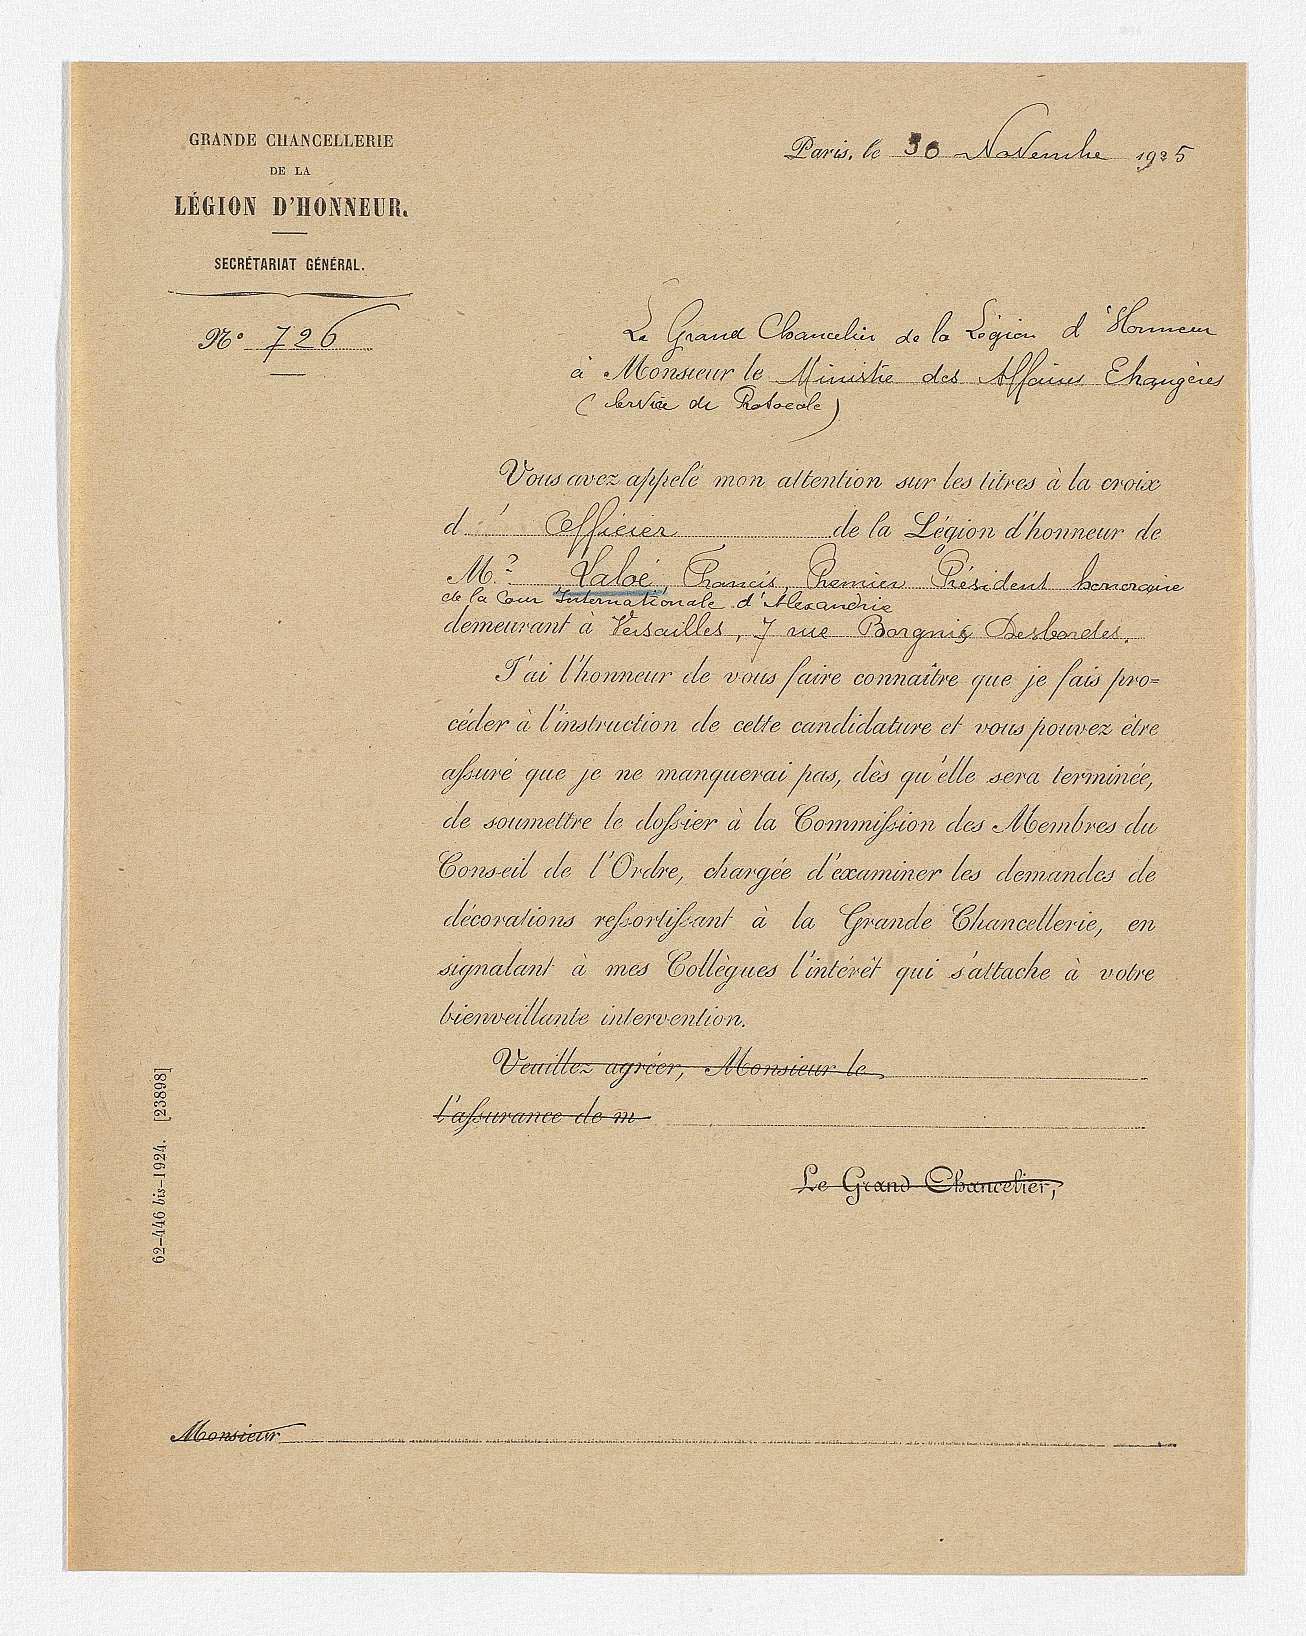 GRANDE CHANCELLERIE
DE LA
LÉGION D'HONNEUR.
SECRÉTARIAT GÉNÉRAL.
N° 726
Paris, le 30 Novembre 1925
Le Grand Chancelier de la Légion d'Honneur
à Monsieur le Ministre des Affaires Etrangères
(Service du Protocole)
Vous avez appelé mon attention sur les titres à la croix
d'Officier de la Légion d'honneur de
M. Laloé, Francis, Premier Président honoraire
de la Cour Internationale d'Alexandrie
demeurant à Versailles, 7 rue Borgnis Desbordes.
J'ai l'honneur de vous faire connaître que je fais pro=
céder à l'instruction de cette candidature et vous pouvez être
assuré que je ne manquerai pas, dès qu'elle sera terminée,
de soumettre le dossier à la Commission des Membres du
Conseil de l'Ordre, chargée d'examiner les demandes de
décorations ressortissant à la Grande Chancellerie, en
signalant à mes Collègues l'intérêt qui s'attache à votre
bienveillante intervention.
Veuillez agréer, Monsieur le
l'assurance de m
Le Grand Chancelier,
Monsieur
62-446 bis-1924. [23898]